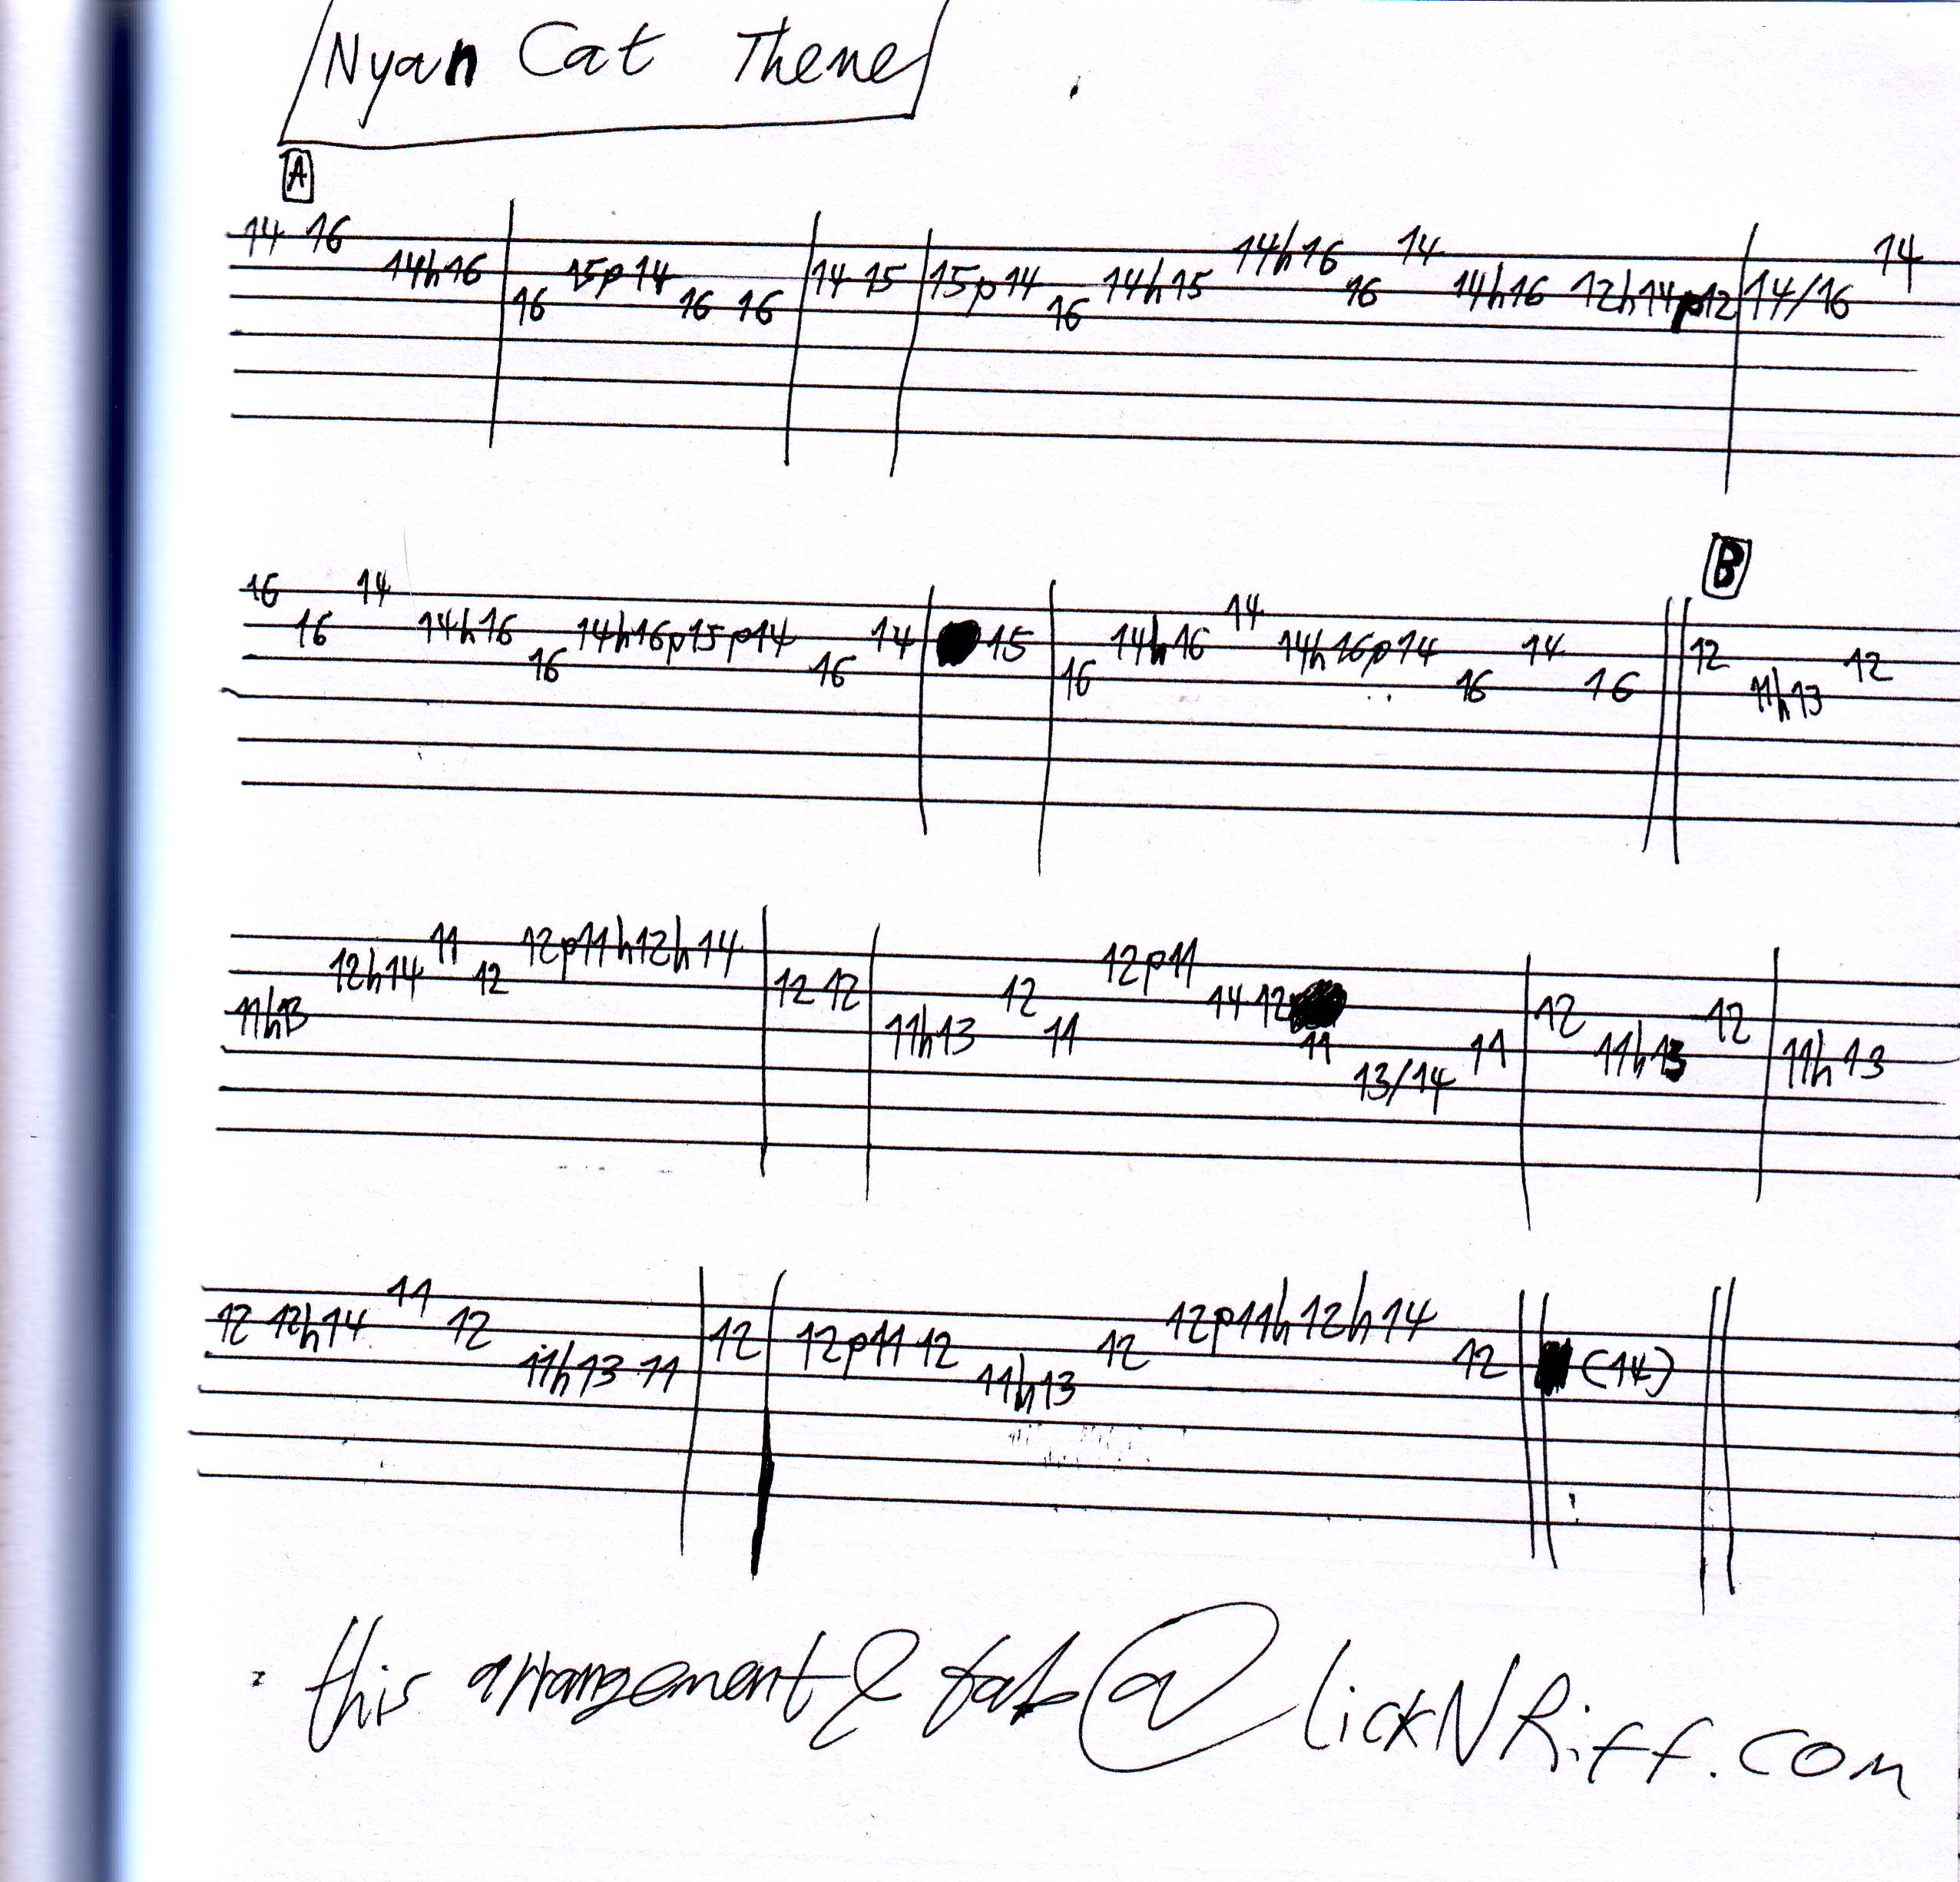 Nyan Cat Theme
A
14 16 14h16 16 15p14 16 16 14 15 15p14 16 14h15 14h16 16 14 14h16 12h14p12 14/16 14
B
16 16 14 14h16 16 14h16p15p14 16 14 15 16 14h16 14 14h16p14 16 14 16 12 11h13 12
11h13 12h14 11 12 12p11h12h14 12 12 11h13 12 11 12p11 14 12 11 13/14 11 12 11h13 12 11h13
12 12h14 11 12 11h13 11 12 12p11 12 11h13 12 12p11h12h14 12 (14)
this arrangement & tab @ lickNRiff.com